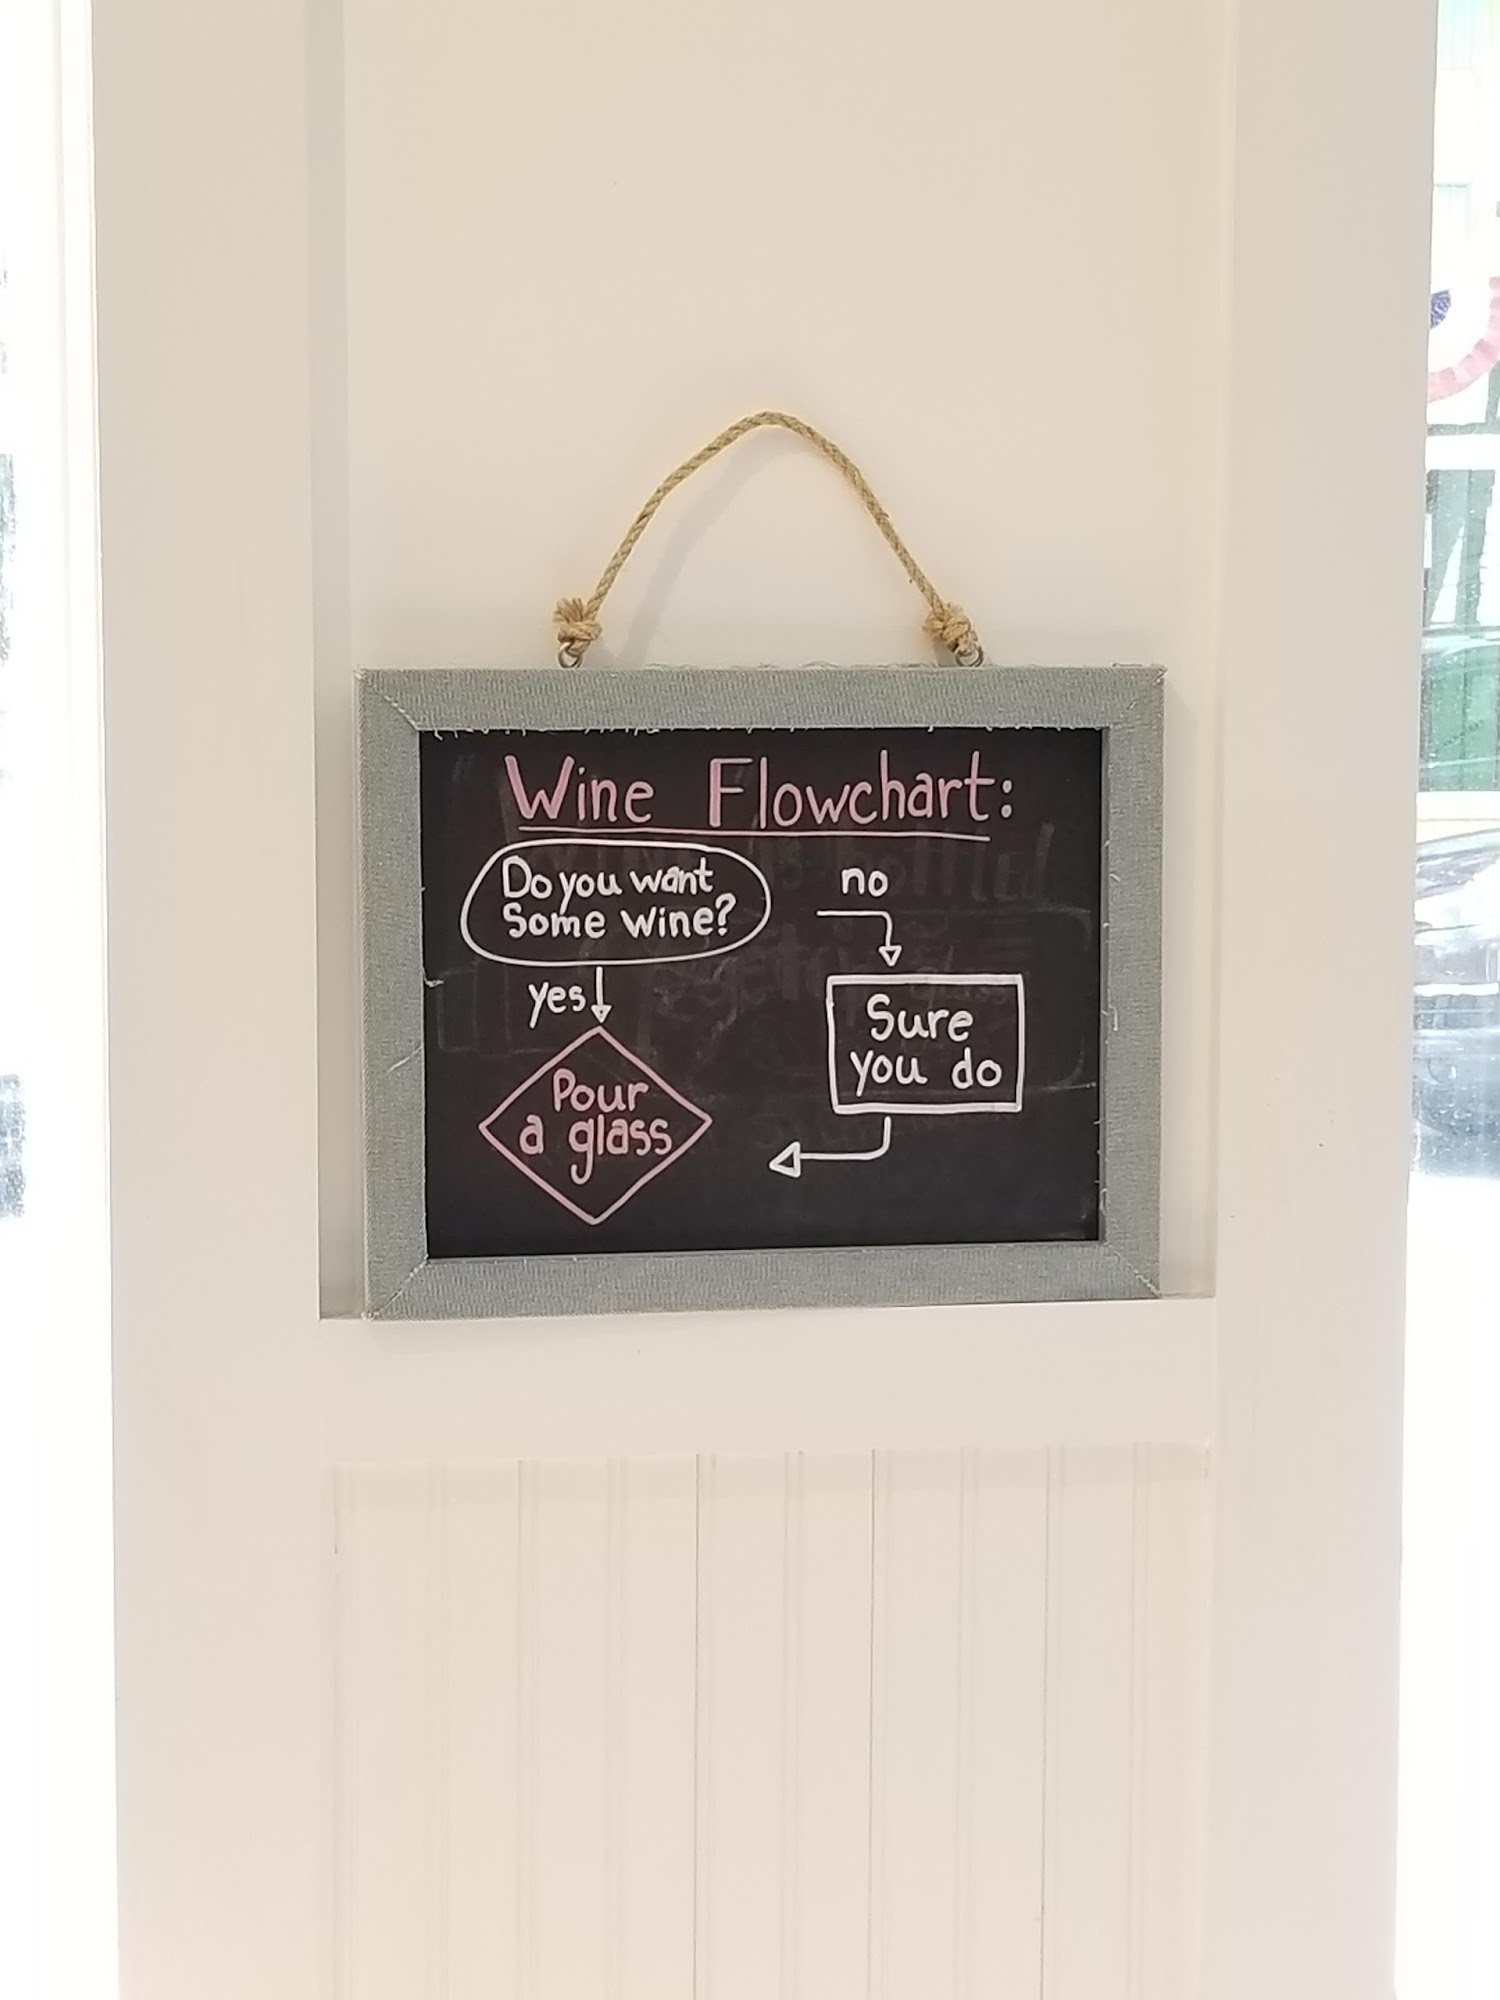 Wine Flowchart:
Do you want
Some wine?
no
yes
Sure
you do
Pour
a glass